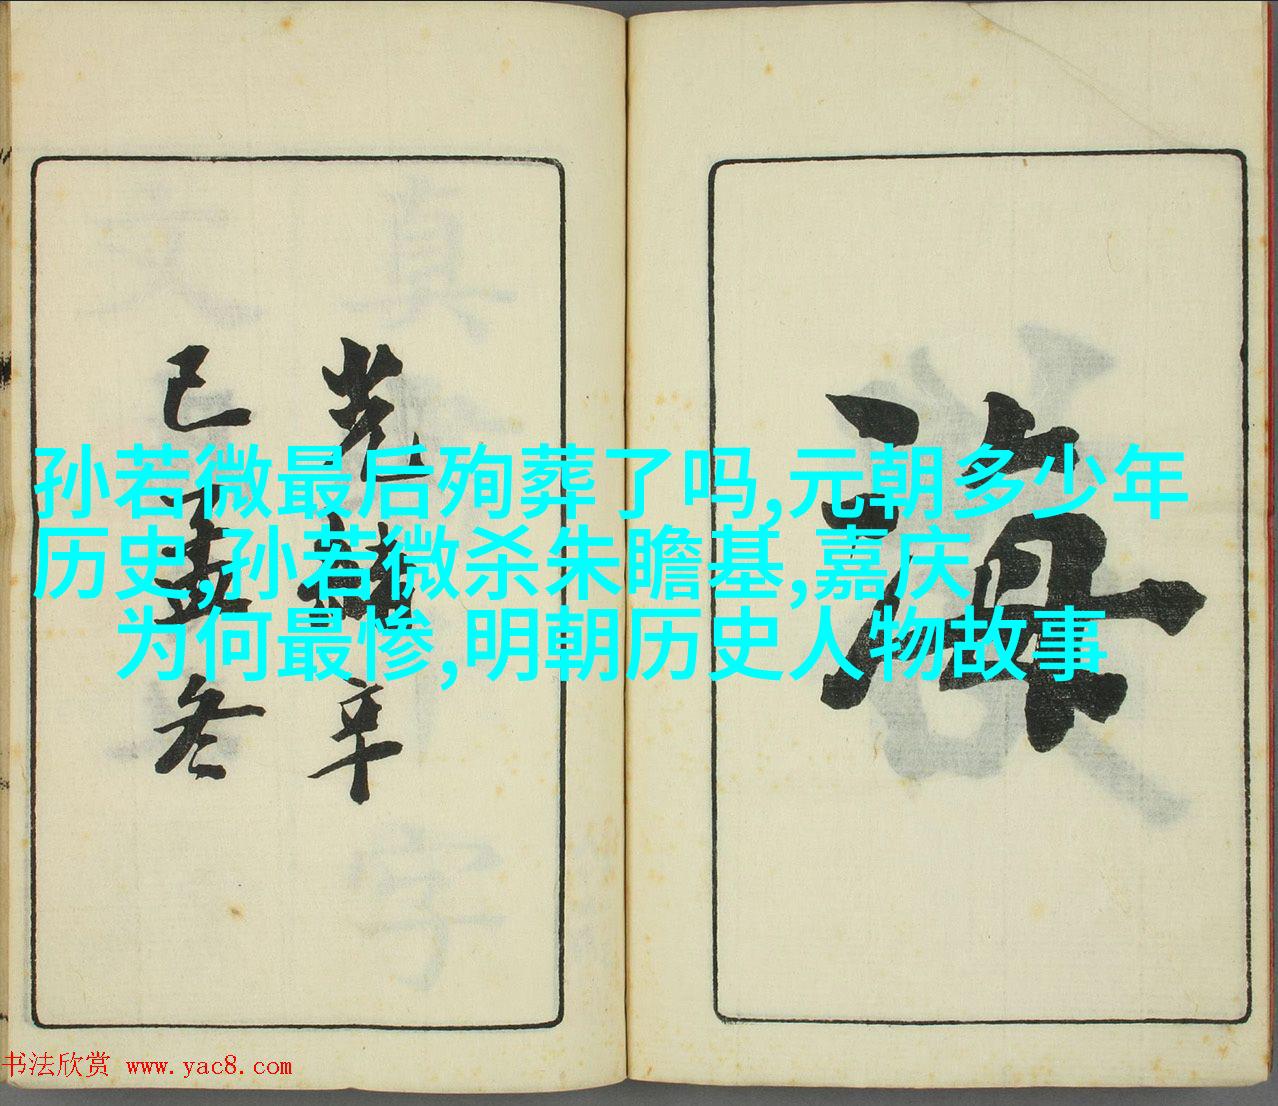 孙若微最后殉葬了吗,元朝多少年
历史,孙若微杀朱瞻基,嘉庆
为何最惨,明朝历史人物故事
海
光绪辛
已孟冬
书法欣赏 www.yac8.com